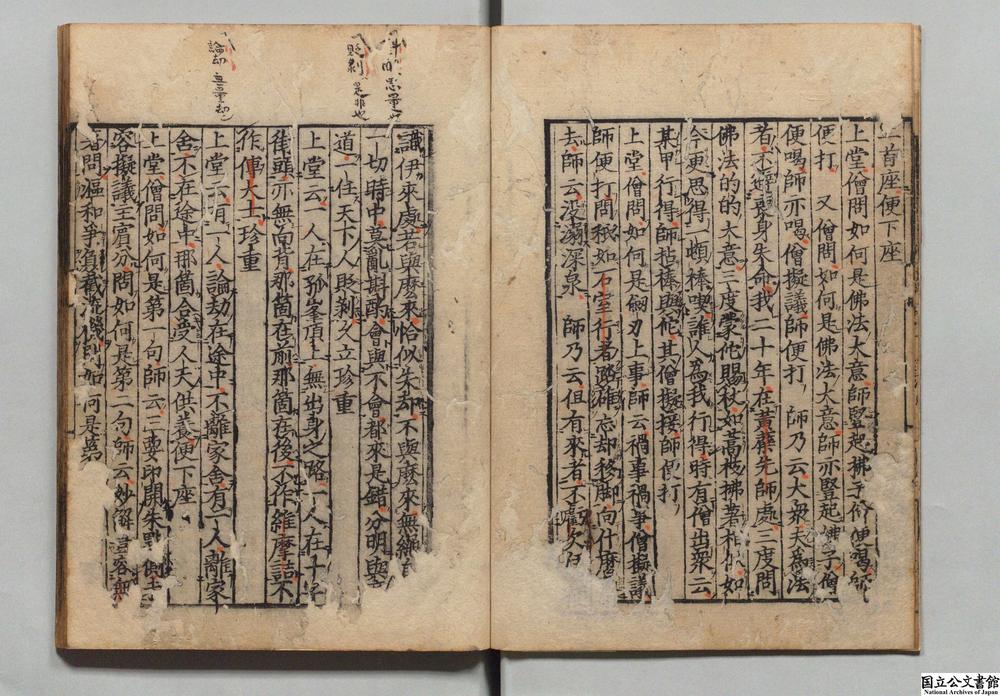 首座便下座
上堂僧問如何是佛法大意師竪起拂子僧便喝師
便打 又僧問如何是佛法大意師亦竪起佛子僧
便喝師亦喝僧擬議師便打 師乃云大衆夫為法
者不避喪身失命我二十年在黄蘗先師處三度問
佛法的的大意三度蒙他賜杖如蒿枝拂著相似如
今更思得一頓棒喫誰人為我行得時有僧出衆云
某甲行得師拈棒與他其僧擬接師便打
上堂僧問如何是劒刃上事師云禍事禍事僧擬議
師便打問秪如石室行者踏碓忘却移脚向什麼
去師云没溺深泉 師乃云但有来者不虧欠
識伊来處若與麼来恰似失却不與麼来無繩
一切時中莫亂斟酌會與不會都来是錯分明與
道一任天下人貶剝久立珍重
上堂云一人在孤峯頂上無出身之路一人在十字
街頭亦無向背那箇在前那箇在後不作維摩詰不
作傅大士珍重
上堂云有一人論劫在途中不離家舍有一人離家
舍不在途中那箇合受人天供養便下座
上堂僧問如何是第一句師云三要印開朱點側
容擬議主賔分問如何是第二句師云妙解
著問漚和爭
如何是第
論劫 無量劫
貶剝 是非也
国立公文書館
National Archives of Japan